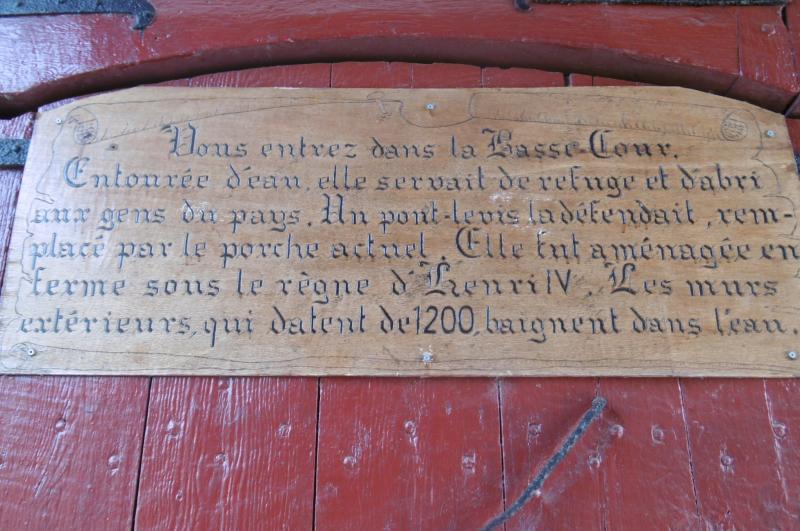 Vous entrez dans la Basse-Cour.
Entourée d'eau, elle servait de refuge et d'abri
aux gens du pays. Un pont-levis la défendait, rem-
placé par le porche actuel. Elle fut aménagée en
ferme sous le règne d'Henri IV. Les murs
extérieurs, qui datent de 1200, baignent dans l'eau.